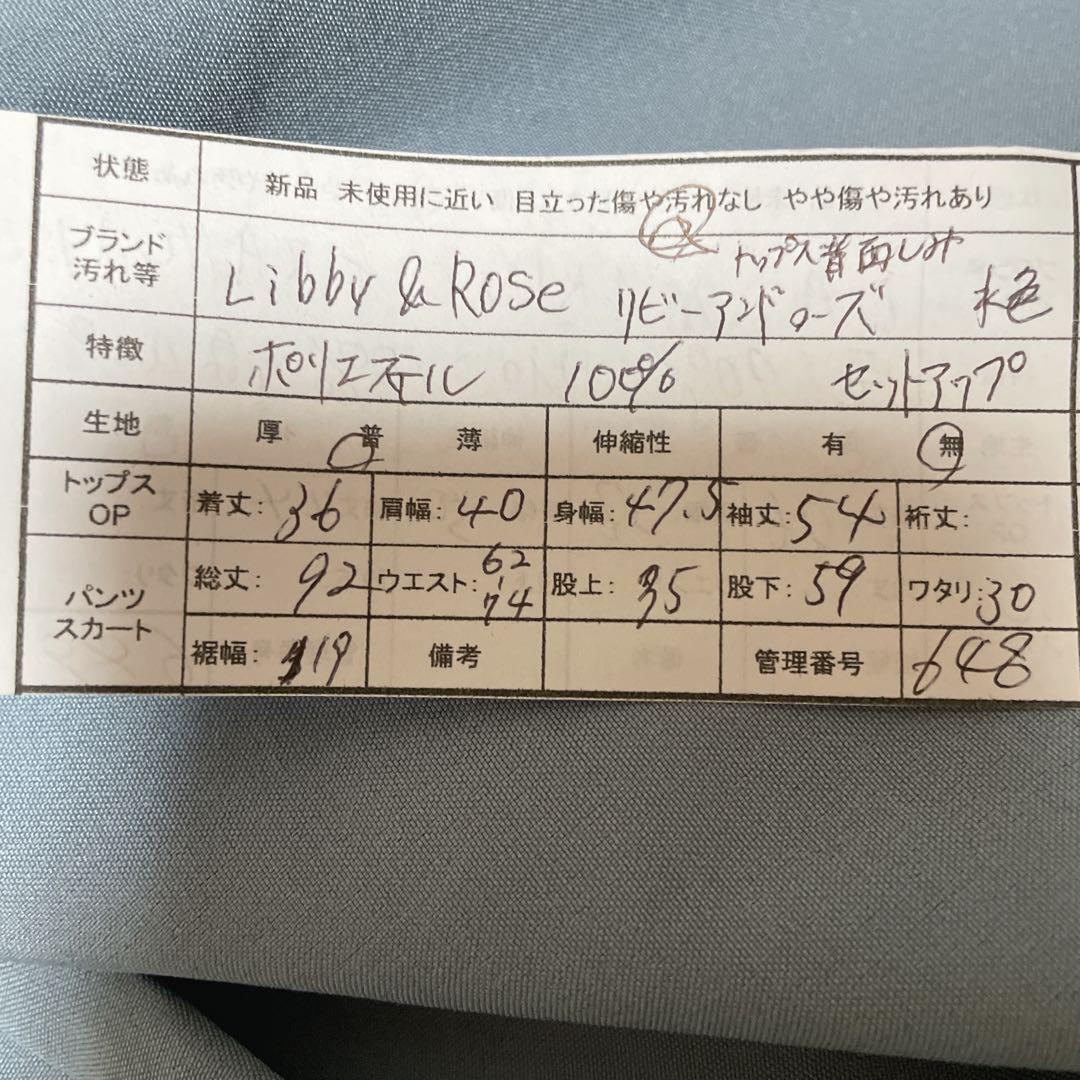 状態 新品 未使用に近い 目立った傷や汚れなし やや傷や汚れあり
ブランド 汚れ等 トップス背面しみ
Libby & Rose リビーアンドローズ 水色
特徴 ポリエステル 100% セットアップ
生地 厚 普 薄 伸縮性 有 無
トップス OP 着丈: 36 肩幅: 40 身幅: 47.5 袖丈: 54 裄丈:
パンツ スカート 総丈: 92 ウエスト: 62 - 74 股上: 35 股下: 59 ワタリ: 30
裾幅: 19 備考 管理番号 648